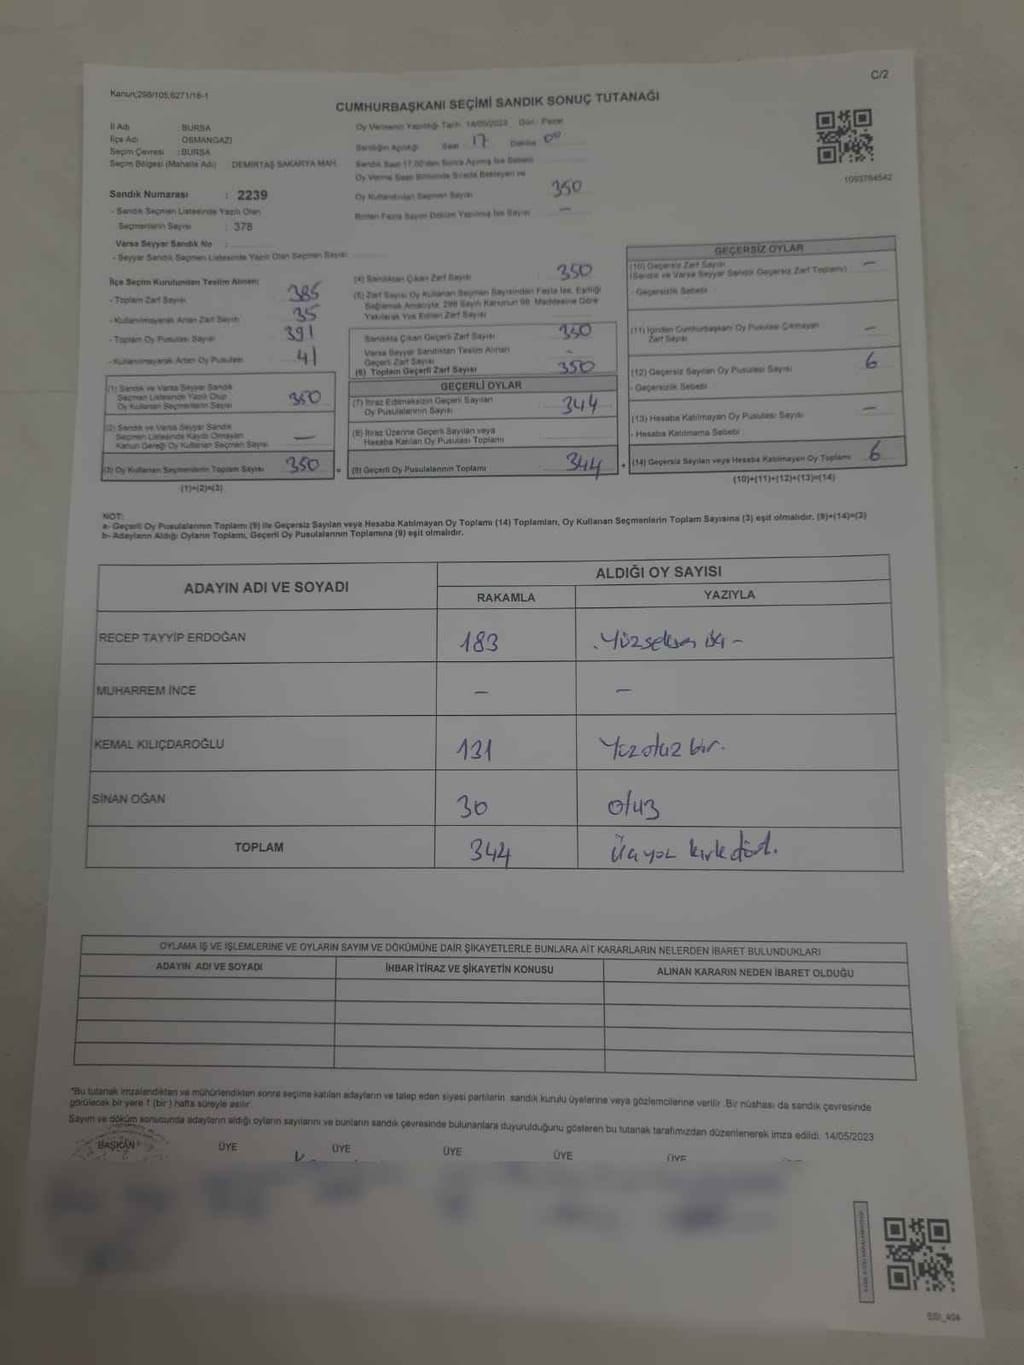 C/2
Kanun;298/105,6271/18-1
CUMHURBAŞKANI SEÇİMİ SANDIK SONUÇ TUTANAĞI
İl Adı : BURSA
İlçe Adı : OSMANGAZİ
Seçim Çevresi : BURSA
Seçim Bölgesi (Mahalle Adı) : DEMİRTAŞ SAKARYA MAH.
Sandık Numarası : 2239
- Sandık Seçmen Listesinde Yazılı Olan
Seçmenlerin Sayısı : 378
Varsa Seyyar Sandık No :
- Seyyar Sandık Seçmen Listesinde Yazılı Olan Seçmen Sayısı
Oy Vermenin Yapıldığı Tarih 14/05/2023 Gün: Pazar
Sandığın Açıldığı Saat 17 Dakika 00
Sandık Saat 17.00'den Sonra Açılmış İse Sebebi
Oy Verme Saati Bitiminde Sırada Bekleyen ve
Oy Kullandırılan Seçmen Sayısı 350
Birden Fazla Sayım Döküm Yapılmış İse Sayısı —
1093784542
İlçe Seçim Kurulundan Teslim Alınan;
- Toplam Zarf Sayısı 385
- Kullanılmayarak Artan Zarf Sayısı 35
- Toplam Oy Pusulası Sayısı 391
- Kullanılmayarak Artan Oy Pusulası 41
(1) Sandık ve Varsa Seyyar Sandık
Seçmen Listesinde Yazılı Olup
Oy Kullanan Seçmenlerin Sayısı 350
(2) Sandık ve Varsa Seyyar Sandık
Seçmen Listesinde Kaydı Olmayan
Kanun Gereği Oy Kullanan Seçmen Sayısı —
(3) Oy Kullanan Seçmenlerin Toplam Sayısı 350
(1)+(2)=(3)
(4) Sandıktan Çıkan Zarf Sayısı 350
(5) Zarf Sayısı Oy Kullanan Seçmen Sayısından Fazla İse, Eşitliği
Sağlamak Amacıyla, 298 Sayılı Kanunun 98. Maddesine Göre
Yakılarak Yok Edilen Zarf Sayısı
Sandıkta Çıkan Geçerli Zarf Sayısı 350
Varsa Seyyar Sandıktan Teslim Alınan
Geçerli Zarf Sayısı -
(6) Toplam Geçerli Zarf Sayısı 350
GEÇERLİ OYLAR
(7) İtiraz Edilmeksizin Geçerli Sayılan
Oy Pusulalarının Sayısı 344
(8) İtiraz Üzerine Geçerli Sayılan veya
Hesaba Katılan Oy Pusulası Toplamı
(9) Geçerli Oy Pusulalarının Toplamı 344
GEÇERSİZ OYLAR
(10) Geçersiz Zarf Sayısı —
(Sandık ve Varsa Seyyar Sandık Geçersiz Zarf Toplamı)
- Geçersizlik Sebebi
(11) İçinden Cumhurbaşkanı Oy Pusulası Çıkmayan
Zarf Sayısı —
(12) Geçersiz Sayılan Oy Pusulası Sayısı 6
- Geçersizlik Sebebi
(13) Hesaba Katılmayan Oy Pusulası Sayısı —
- Hesaba Katılmama Sebebi
(14) Geçersiz Sayılan veya Hesaba Katılmayan Oy Toplamı 6
(10)+(11)+(12)+(13)=(14)
NOT:
a- Geçerli Oy Pusulalarının Toplamı (9) ile Geçersiz Sayılan veya Hesaba Katılmayan Oy Toplamı (14) Toplamları, Oy Kullanan Seçmenlerin Toplam Sayısına (3) eşit olmalıdır. (9)+(14)=(3)
b- Adayların Aldığı Oyların Toplamı, Geçerli Oy Pusulalarının Toplamına (9) eşit olmalıdır.
ADAYIN ADI VE SOYADI ALDIĞI OY SAYISI
RAKAMLA YAZIYLA
RECEP TAYYİP ERDOĞAN 183 Yüzseksen
MUHARREM İNCE — —
KEMAL KILIÇDAROĞLU 131 Yüzotuz bir.
SİNAN OĞAN 30 otuz
TOPLAM 344 Üçyüz kırkdört.
OYLAMA İŞ VE İŞLEMLERİNE VE OYLARIN SAYIM VE DÖKÜMÜNE DAİR ŞİKAYETLERLE BUNLARA AİT KARARLARIN NELERDEN İBARET BULUNDUKLARI
ADAYIN ADI VE SOYADI İHBAR İTİRAZ VE ŞİKAYETİN KONUSU ALINAN KARARIN NEDEN İBARET OLDUĞU
*Bu tutanak imzalandıktan ve mühürlendikten sonra seçime katılan adayların ve talep eden siyasi partilerin, sandık kurulu üyelerine veya gözlemcilerine verilir. Bir nüshası da sandık çevresinde
görülecek bir yere 1 (bir) hafta süreyle asılır.
Sayım ve döküm sonucunda adayların aldığı oyların sayılarını ve bunların sandık çevresinde bulunanlara duyurulduğunu gösteren bu tutanak tarafımızdan düzenlenerek imza edildi. 14/05/2023
BAŞKAN ÜYE ÜYE ÜYE ÜYE ÜYE